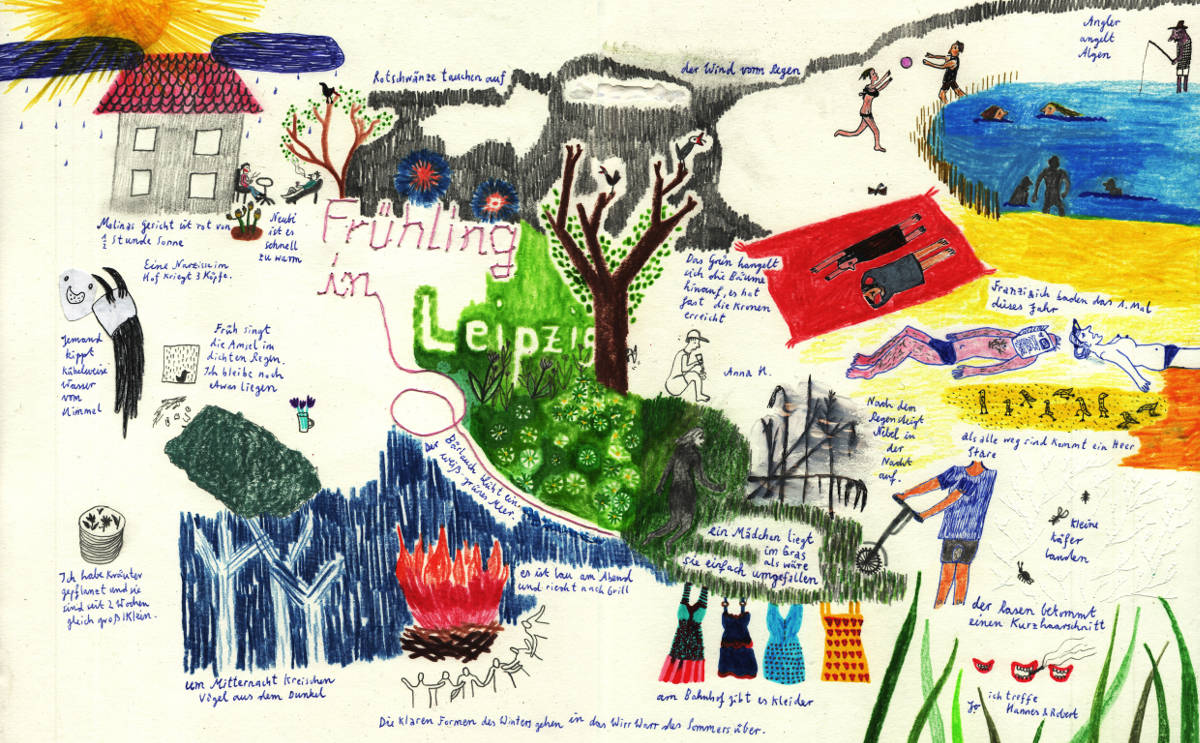 Rotschwänze tauchen auf
der Wind vorm Regen
Angler
angelt
Algen
Malinas Gesicht ist rot von
1/2 Stunde Sonne
Neubi
ist es
schnell
zu warm
Eine Narzisse im
Hof kriegt 3 Köpfe.
Frühling
in
Leipzig
Das Grün hangelt
sich die Bäume
hinauf, es hat
fast die Kronen
erreicht
Franzi & ich baden das 1. Mal
dieses Jahr
Jemand
kippt
kübelweise
Wasser
vom
Himmel
Früh singt
die Amsel im
dichten Regen.
Ich bleibe noch
etwas liegen
Anna H.
Nach dem
Regen steigt
Nebel in
der
Nacht
auf.
als alle weg sind kommt ein Heer
Stare
Der Bärlauch blüht ein
weiß grünes Meer.
ein Mädchen liegt
im Gras
als wäre
sie einfach umgefallen
kleine
Käfer
landen
Ich habe Kräuter
gepflanzt und sie
sind seit 2 Wochen
gleich groß/klein.
es ist lau am Abend
und riecht nach Grill
der Rasen bekommt
einen Kurzhaarschnitt
um Mitternacht kreischen
Vögel aus dem Dunkel
am Bahnhof gibt es Kleider
ich treffe
Hannes & Robert
Die klaren Formen des Winters gehen in das Wirr Warr des Sommers über.